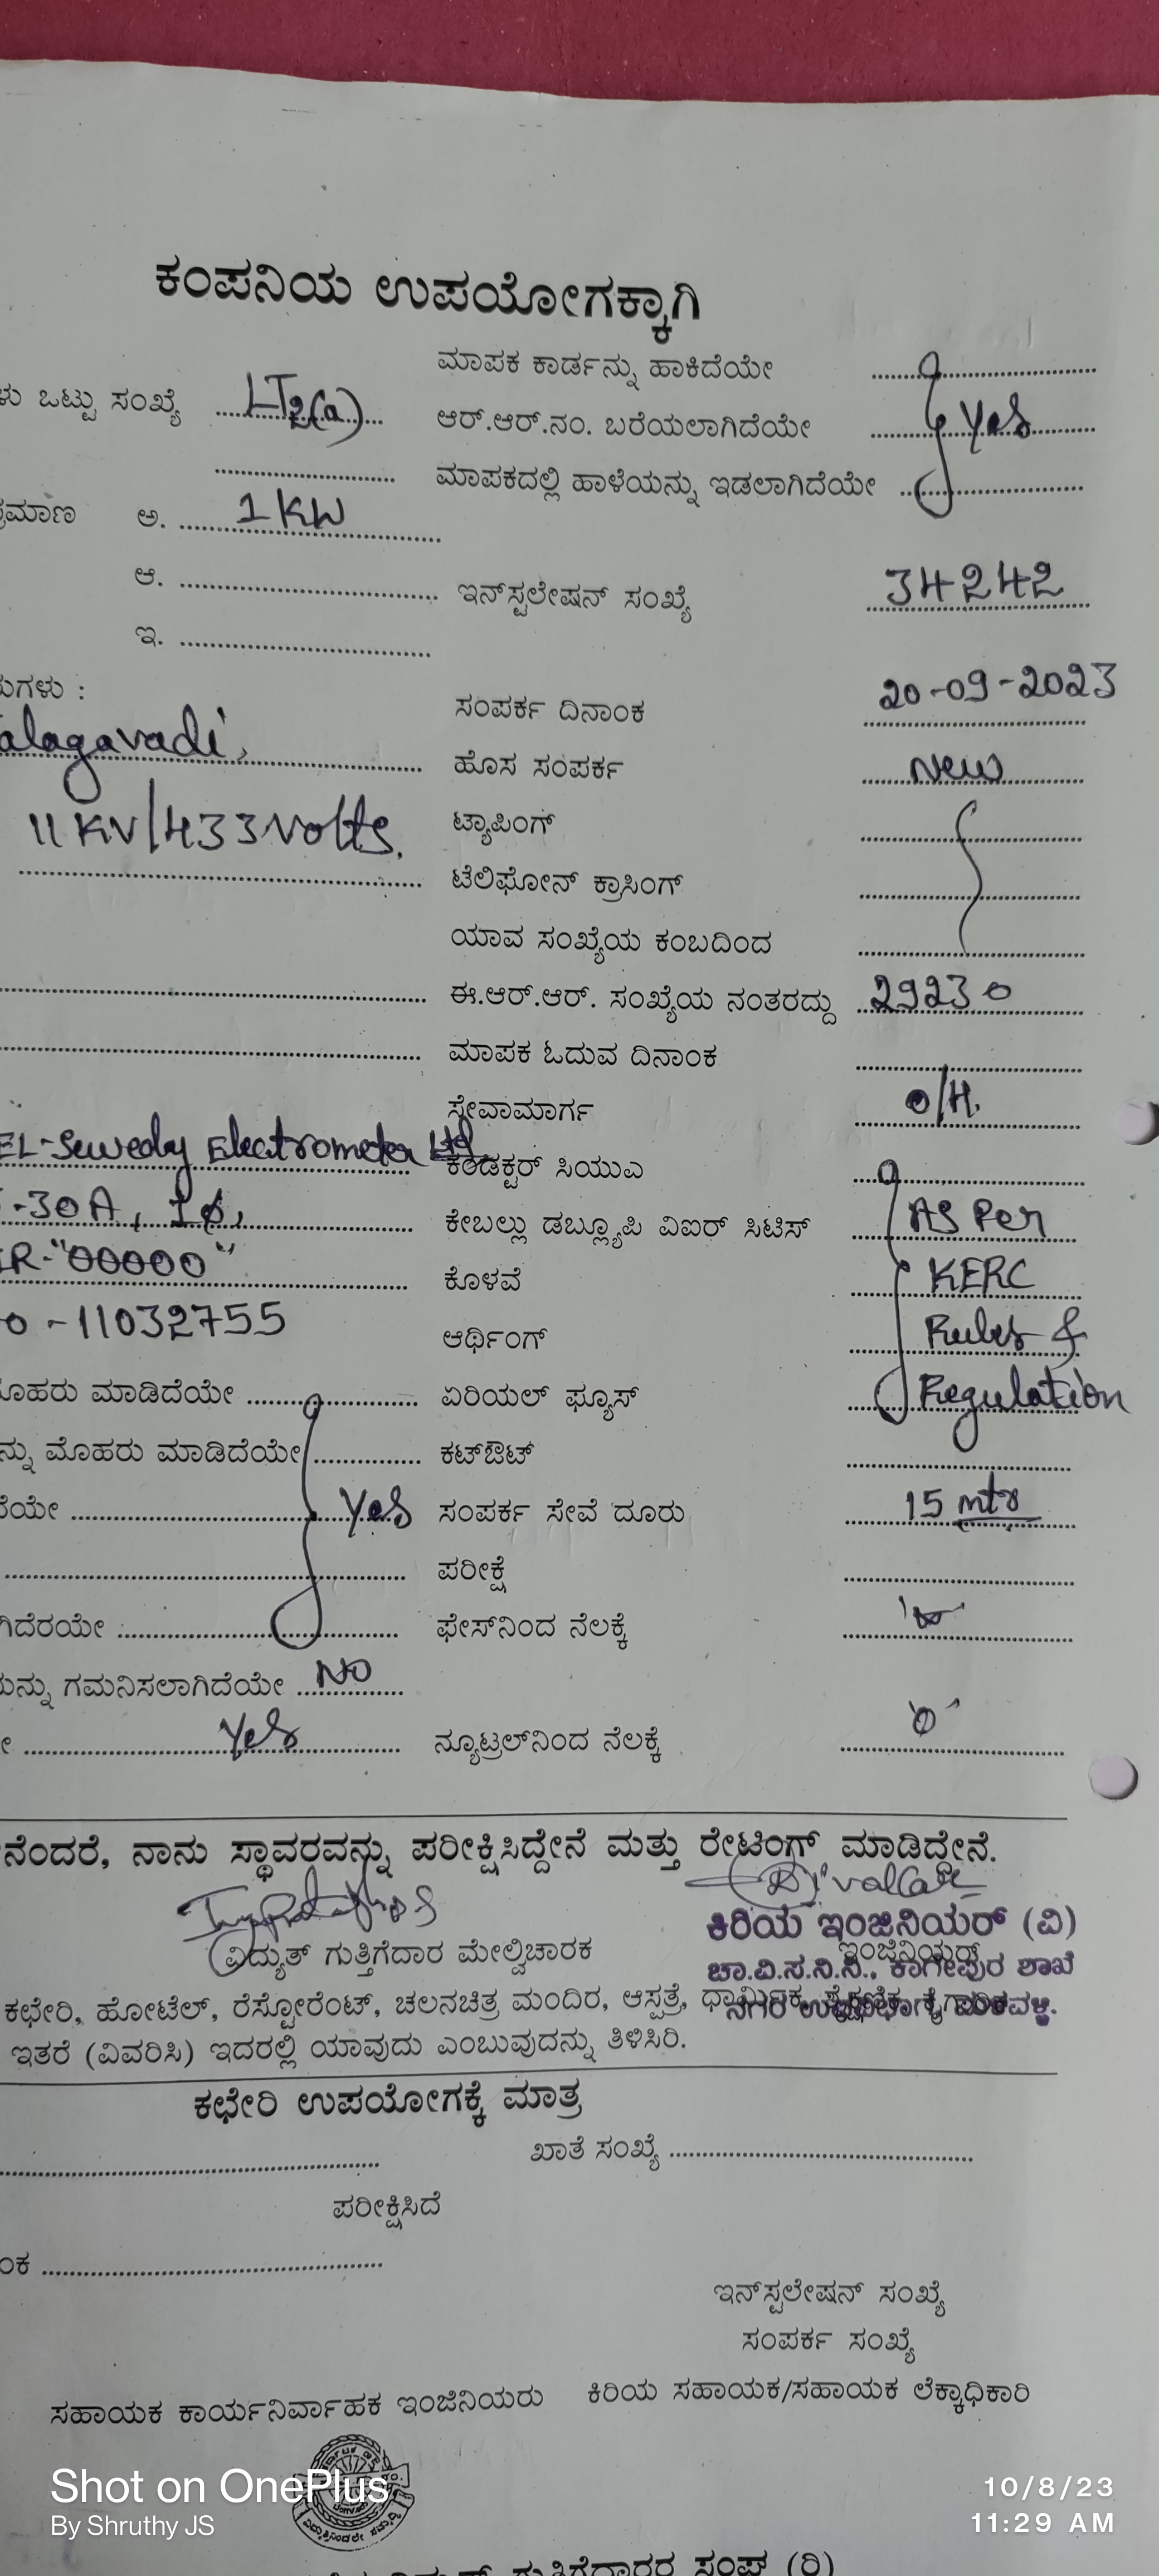 ಕಂಪನಿಯ ಉಪಯೋಗಕ್ಕಾಗಿ
ಮಾಪಕ ಕಾರ್ಡನ್ನು ಹಾಕಿದೆಯೇ
ಒಟ್ಟು ಸಂಖ್ಯೆ LT2(a) ಆರ್.ಆರ್.ನಂ. ಬರೆಯಲಾಗಿದೆಯೇ Yes
ಮಾಪಕದಲ್ಲಿ ಹಾಳೆಯನ್ನು ಇಡಲಾಗಿದೆಯೇ
ಅ. 1 KW
ಆ. ಇನ್‌ಸ್ಟಲೇಷನ್ ಸಂಖ್ಯೆ 34242
ಇ.
ಸಂಪರ್ಕ ದಿನಾಂಕ 20-09-2023
alagavadi, ಹೊಸ ಸಂಪರ್ಕ New
11 KV/433 Volts. ಟ್ಯಾಪಿಂಗ್
ಟೆಲಿಫೋನ್ ಕ್ರಾಸಿಂಗ್
ಯಾವ ಸಂಖ್ಯೆಯ ಕಂಬದಿಂದ
ಈ.ಆರ್.ಆರ್. ಸಂಖ್ಯೆಯ ನಂತರದ್ದು 29230
ಮಾಪಕ ಓದುವ ದಿನಾಂಕ
ಸೇವಾಮಾರ್ಗ O/H.
EL-Sewedy Electrometer Ltd ಕಂಡಕ್ಟರ್ ಸಿಯುಎ
-30A, 1φ, ಕೇಬಲ್ಲು ಡಬ್ಲ್ಯೂಪಿ ವಿಐರ್ ಸಿಟಿಸ್ AS Per
IR-"00000" ಕೊಳವೆ KERC
o - 11032755 ಆರ್ಥಿಂಗ್ Rules &
ಮಾಡಿದೆಯೇ ಏರಿಯಲ್ ಫ್ಯೂಸ್ Regulation
ಮೊಹರು ಮಾಡಿದೆಯೇ ಕಟ್‌ಔಟ್
Yes ಸಂಪರ್ಕ ಸೇವೆ ದೂರು 15 mtr
ಪರೀಕ್ಷೆ
ಫೇಸ್‌ನಿಂದ ನೆಲಕ್ಕೆ
ಗಮನಿಸಲಾಗಿದೆಯೇ NO
Yes ನ್ಯೂಟ್ರಲ್‌ನಿಂದ ನೆಲಕ್ಕೆ
ನೆಂದರೆ, ನಾನು ಸ್ಥಾವರವನ್ನು ಪರೀಕ್ಷಿಸಿದ್ದೇನೆ ಮತ್ತು ರೇಟಿಂಗ್ ಮಾಡಿದ್ದೇನೆ.
ಕಿರಿಯ ಇಂಜಿನಿಯರ್ (ವಿ)
ವಿದ್ಯುತ್ ಗುತ್ತಿಗೆದಾರ ಮೇಲ್ವಿಚಾರಕ ಇಂಜಿನಿಯರ್
ಚಾ.ವಿ.ಸ.ನಿ.ನಿ., ಕಾಗೇಪುರ ಶಾಖೆ
ಕಛೇರಿ, ಹೋಟೆಲ್, ರೆಸ್ಟೋರೆಂಟ್, ಚಲನಚಿತ್ರ ಮಂದಿರ, ಆಸ್ಪತ್ರೆ, ಧಾರ್ಮಿಕ,
ಇತರೆ (ವಿವರಿಸಿ) ಇದರಲ್ಲಿ ಯಾವುದು ಎಂಬುವುದನ್ನು ತಿಳಿಸಿರಿ.
ಕಛೇರಿ ಉಪಯೋಗಕ್ಕೆ ಮಾತ್ರ
ಖಾತೆ ಸಂಖ್ಯೆ
ಪರೀಕ್ಷಿಸಿದೆ
ಇನ್‌ಸ್ಟಲೇಷನ್ ಸಂಖ್ಯೆ
ಸಂಪರ್ಕ ಸಂಖ್ಯೆ
ಸಹಾಯಕ ಕಾರ್ಯನಿರ್ವಾಹಕ ಇಂಜಿನಿಯರು ಕಿರಿಯ ಸಹಾಯಕ/ಸಹಾಯಕ ಲೆಕ್ಕಾಧಿಕಾರಿ
Shot on OnePlus
By Shruthy JS
10/8/23
11:29 AM
ಗುತ್ತಿಗೆದಾರರ ಸಂಘ (ರಿ)